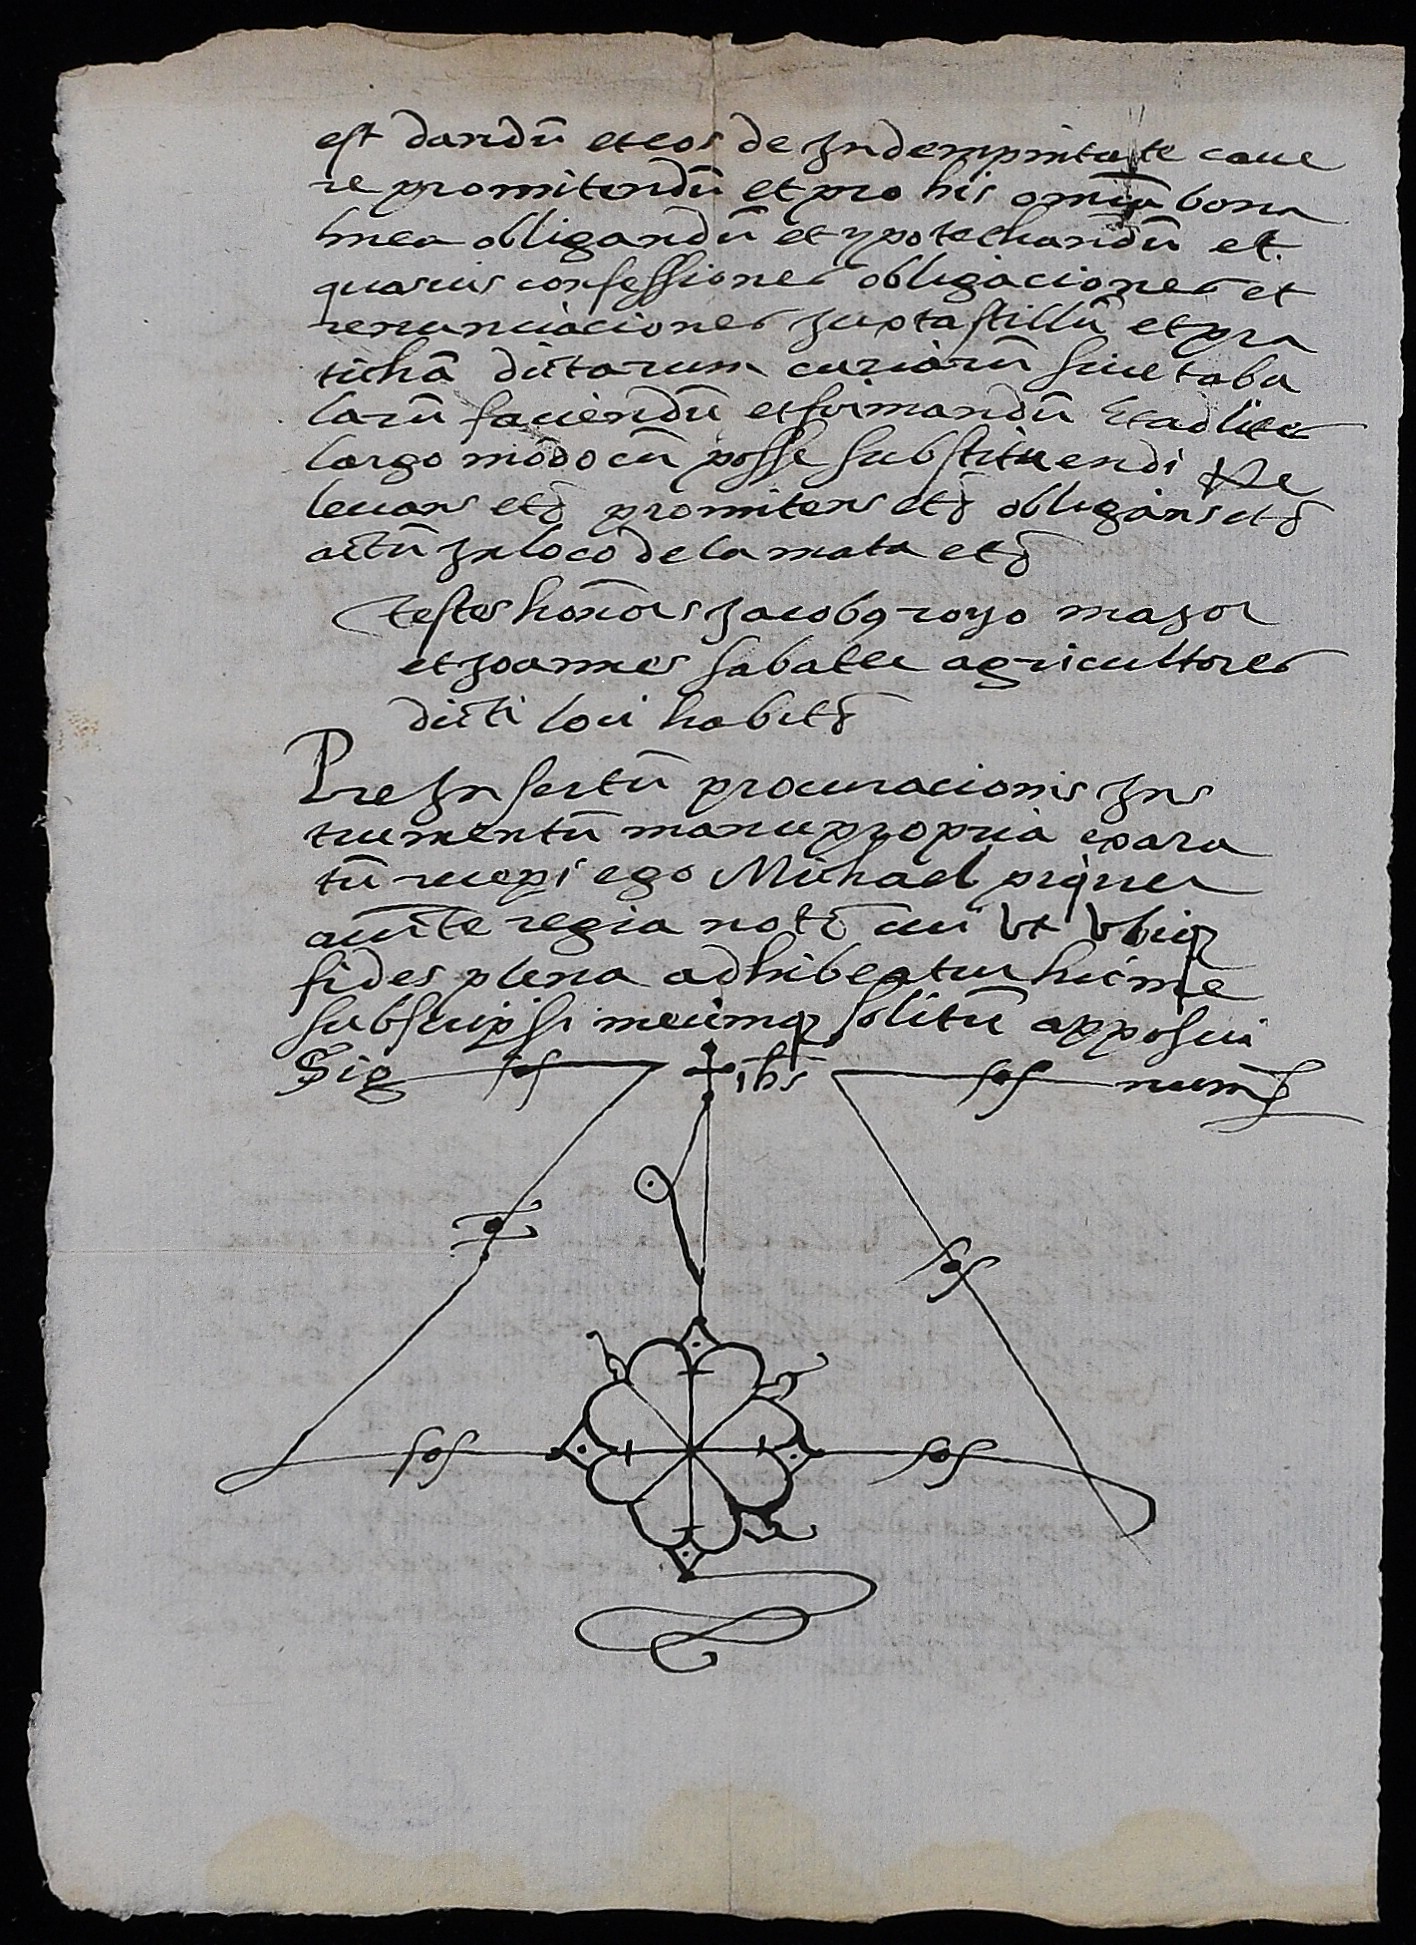 est dandū et eos de Indempnitate caue
re promitendū et pro his omīa bona
mea obligandū et ypotechandū et
quasuis confessiones obligaciones et
renunciaciones Juxta stillū et pra
tichā dictarum curiarū siue tabu
larū faciendū et firmandū Et ad lites
largo modo cū posse substituendi Re
leuans etc̄ promitens etc̄ obligans etc̄
actū In loco de la mata etc̄
testes honors Jacobꝯ royo major
et Joannes sabater agricultores
dicti loci habitꝭ
Pre Insertū procuracionis Ins
trumentū manu propria exara
tū recepi ego Michael piquer
auc̄te regia notꝭ cui Vt Vbiqꝫ
fides plena adhibeatur hic me
subscripsi meūmqꝫ solitū apposui
Sig + ihs num